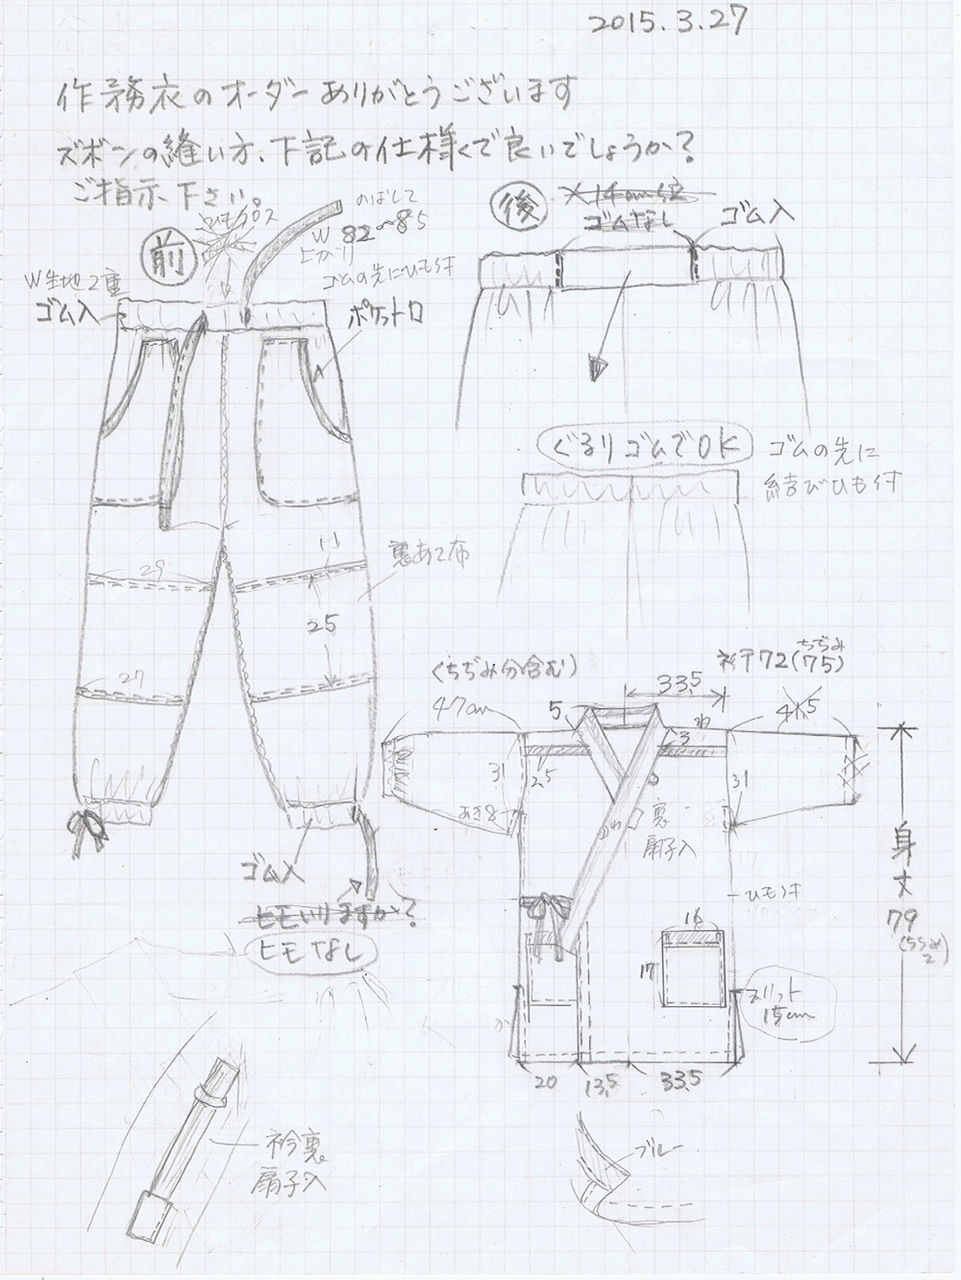 2015.3.27
作務衣のオーダーありがとうございます
ズボンの縫い方、下記の仕様で良いでしょうか?
ご指示下さい。
前
のばして
W 82～85
上がり
ゴムの先にひも付
W生地2重
ゴム入
ポケット口
後
ゴムなし
ゴム入
ぐるりゴムでOK
ゴムの先に
結びひも付
裏あて布
11
29
25
27
ゴム入
ヒモいりますか?
ヒモなし
(ちぢみ分含む)
裄72(75)
ちぢみ
33.5
47cm
5
3
31
2.5
31
あき8
裏
扇子入
ひもつけ
身丈
79
16
17
スリット
15cm
20
13.5
33.5
衿裏
扇子入
ブルー